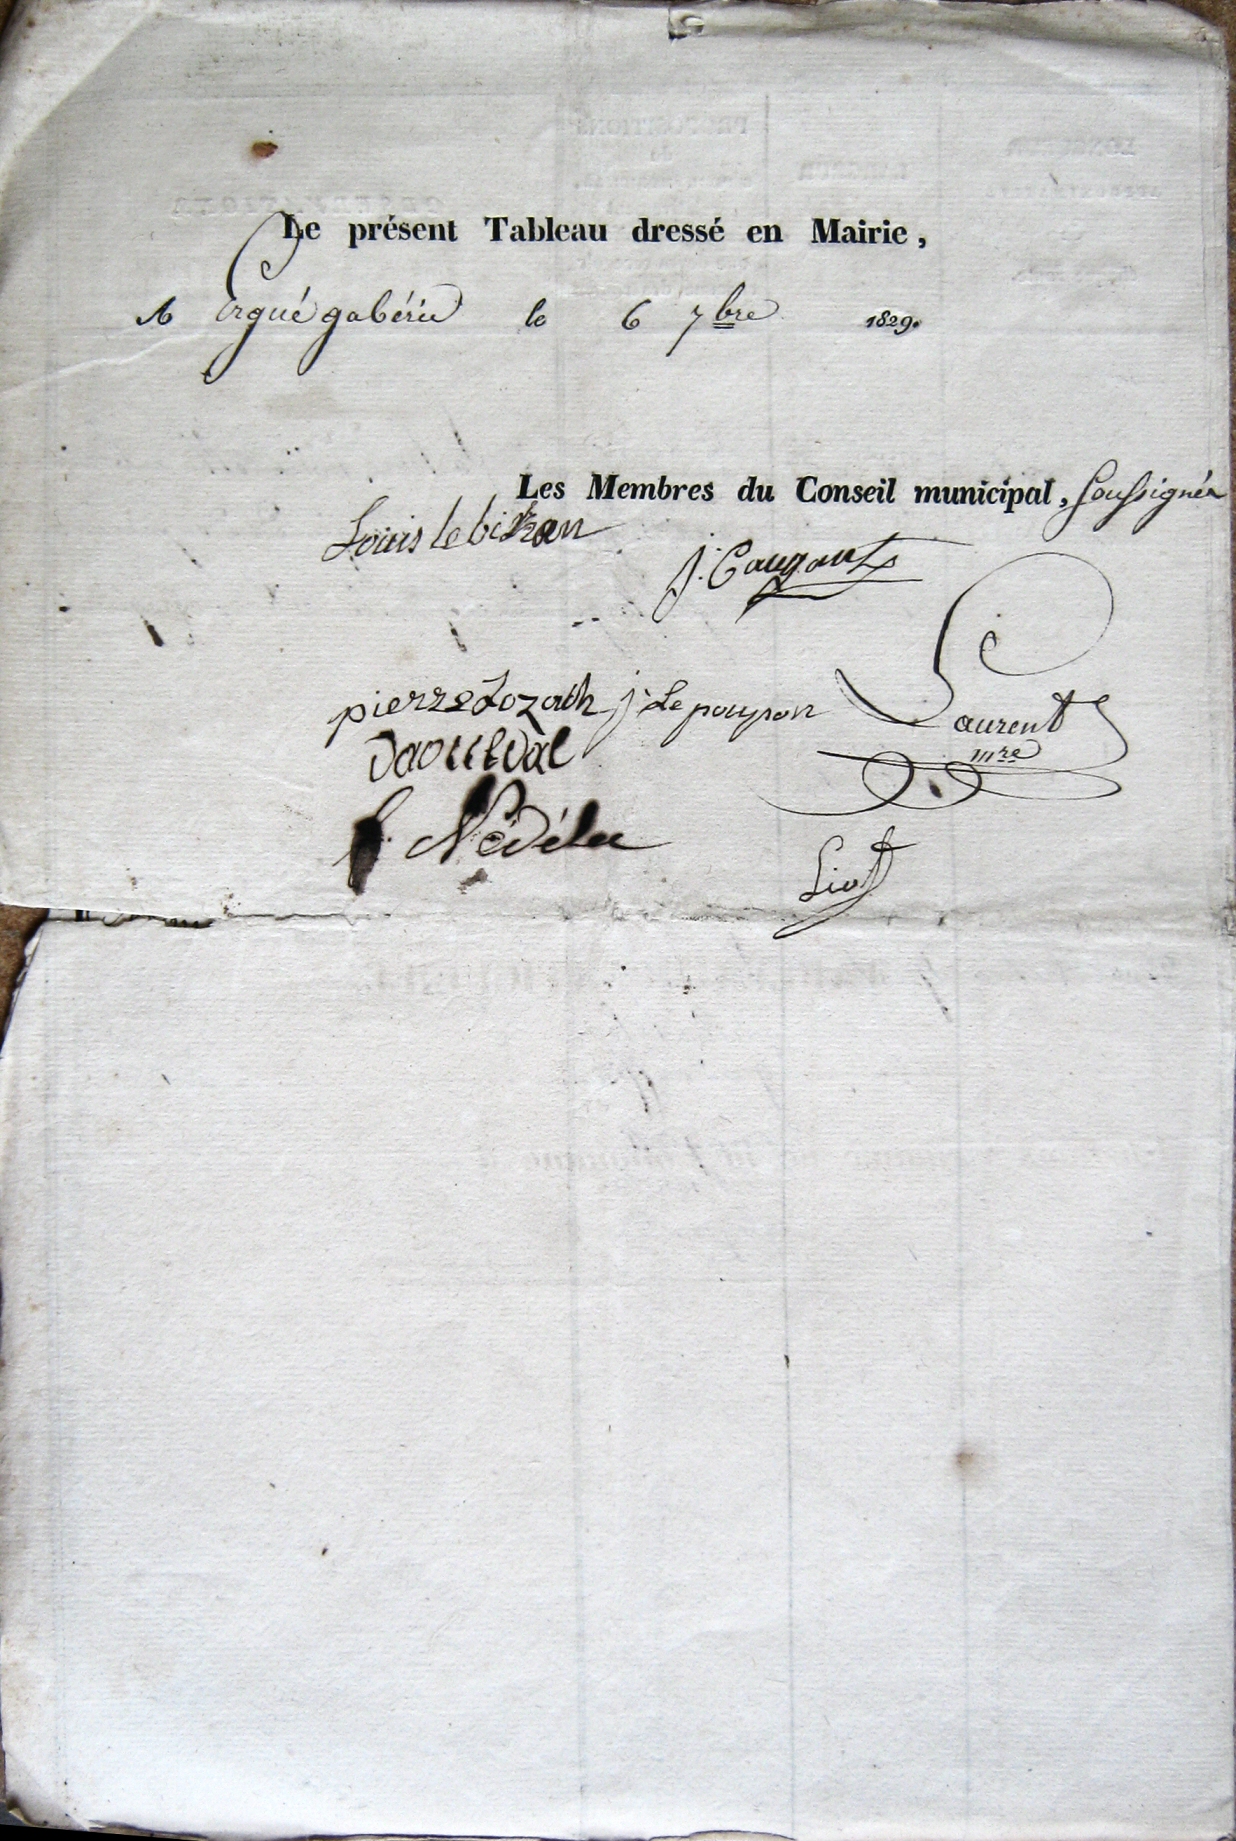 Le présent Tableau dressé en Mairie,
A Ergué gabéric le 6 7bre 1829.
Les Membres du Conseil municipal, soussignés
Louis le bihan
J. Gaugant
pierre Lozach J. Le pouyson
Laurent
mre
Nédélec
Liot